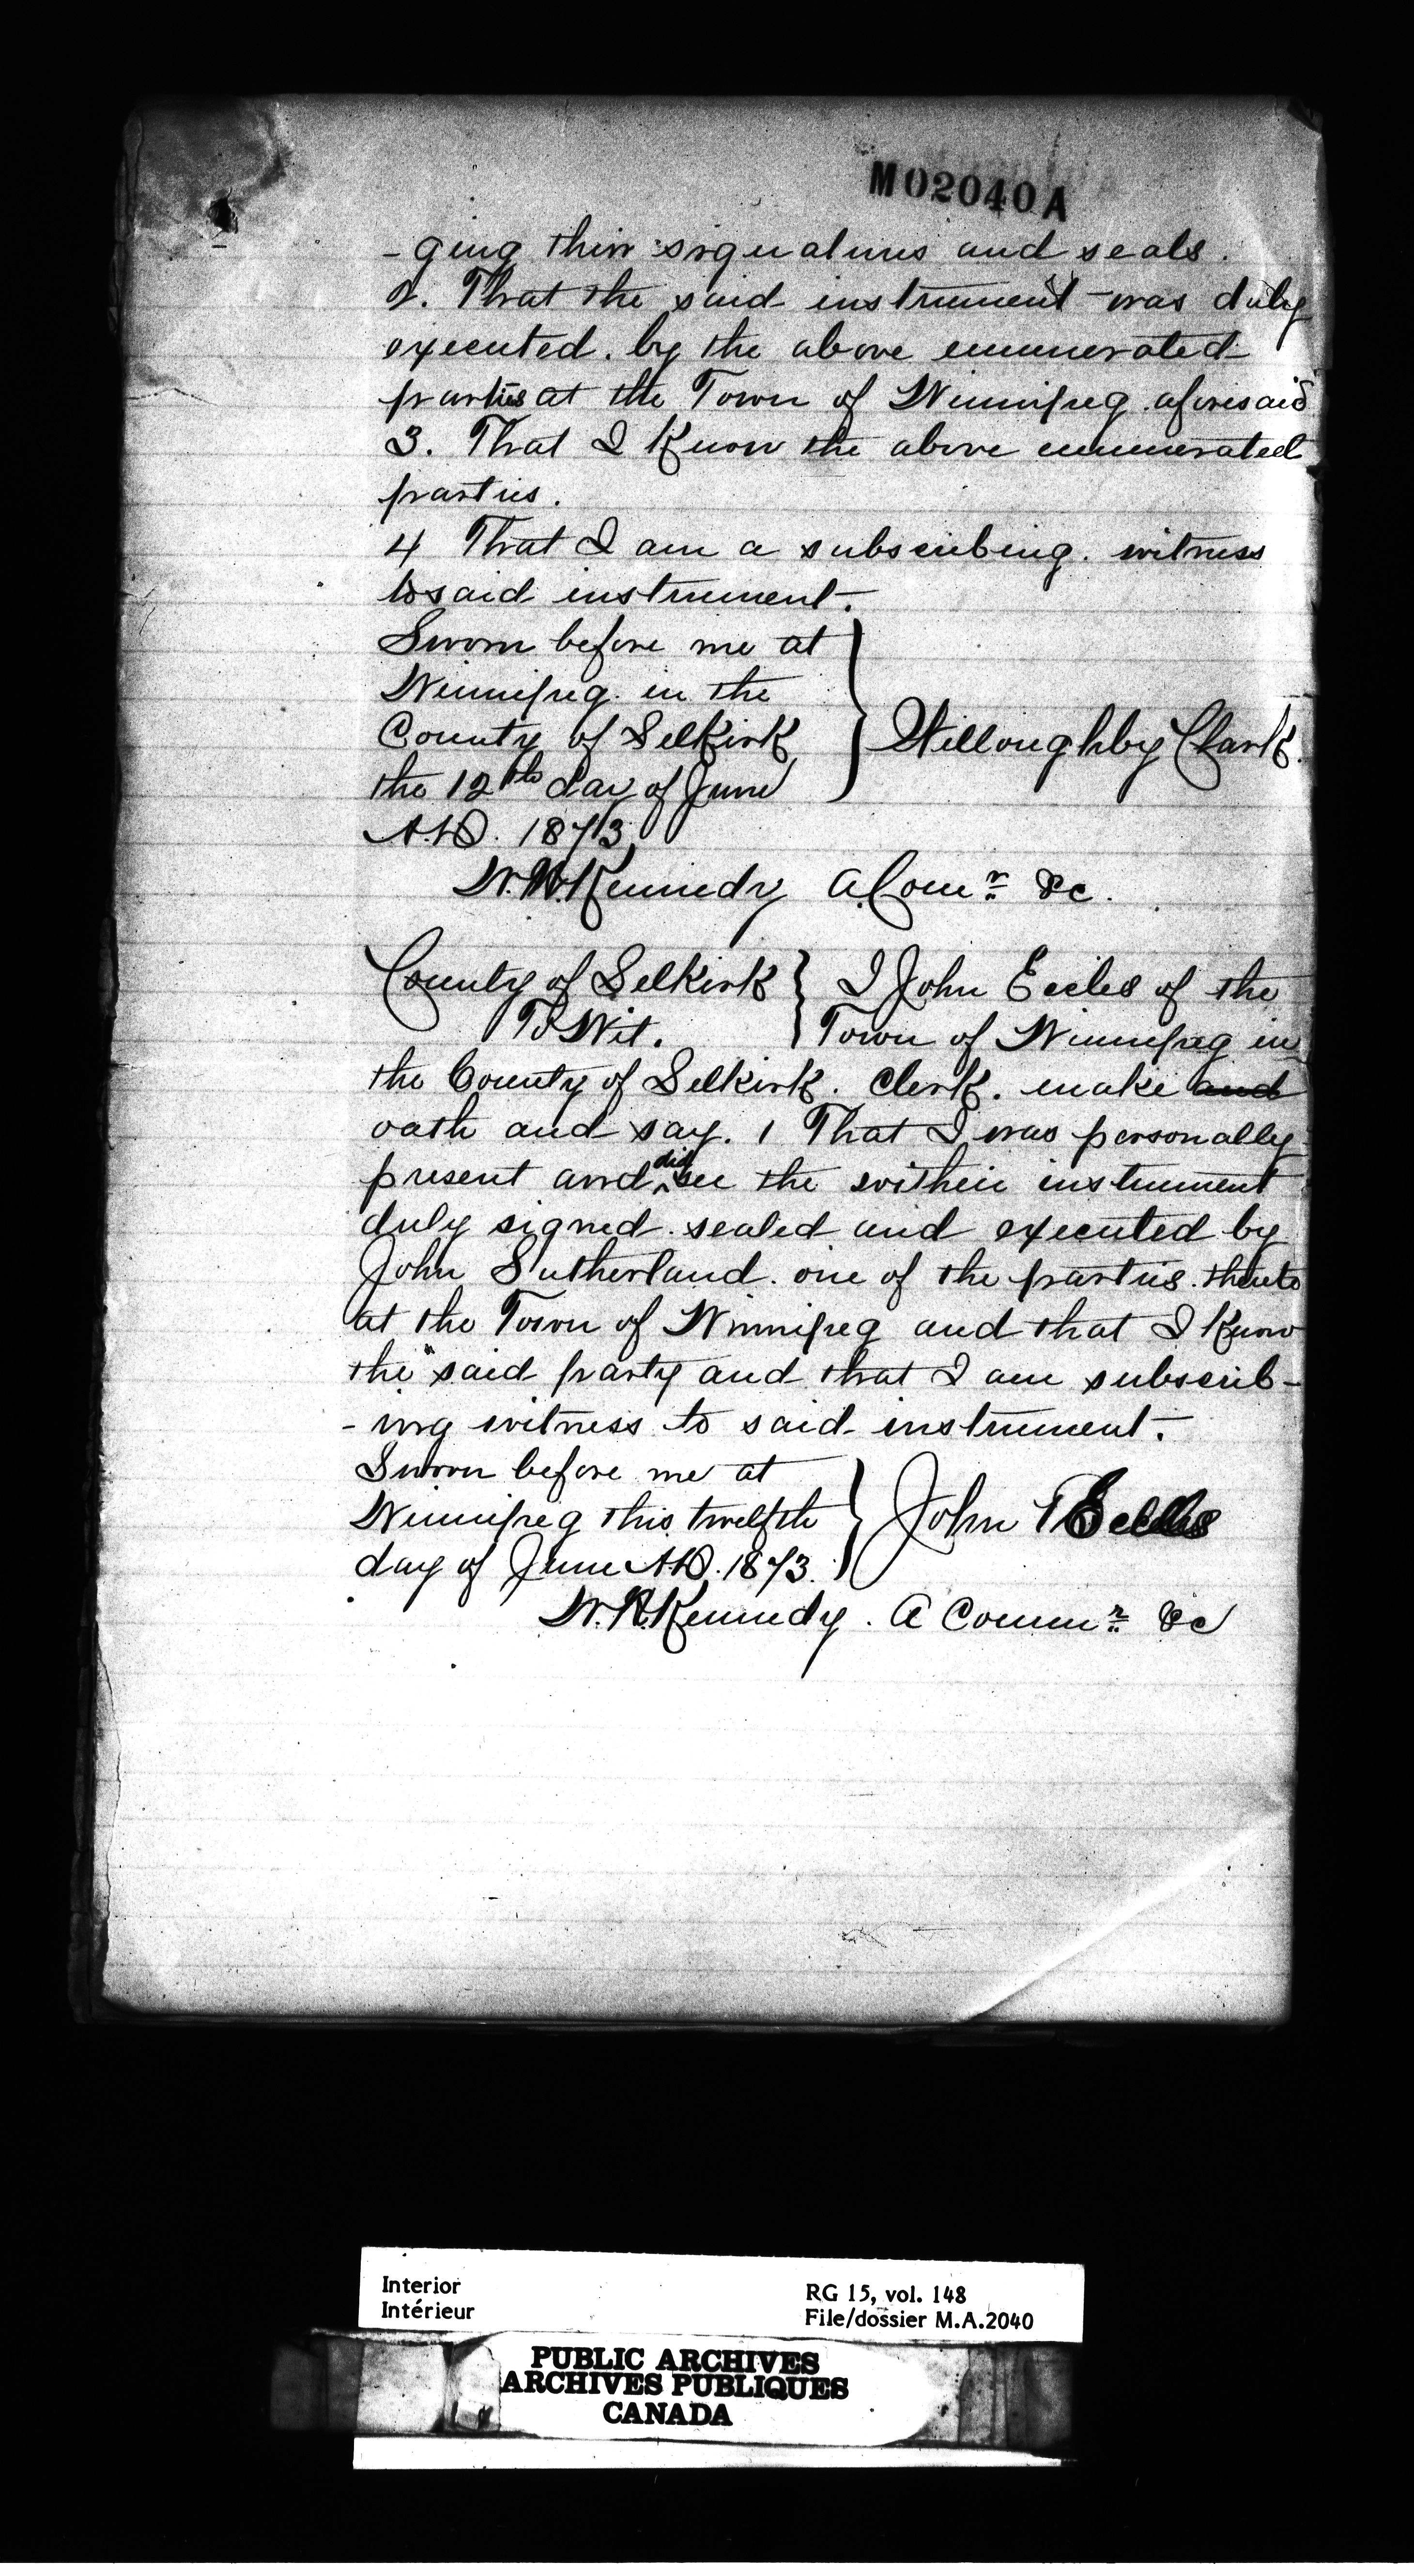 M02040A
-ging their signatures and seals.
2. That the said instrument was duly
executed. by the above enumerated
parties at the Town of Winnipeg aforesaid
3. That I know the above enumerated
parties.
4 That I am a subscribing witness
to said instrument.
Sworn before me at
Winnipeg in the
County of Selkirk
the 12th day of June
A.D. 1873
} Willoughby Clark.
W.N. Kennedy A. Comr &c.
County of Selkirk } I John Eccles of the
To Wit. Town of Winnipeg in
the County of Selkirk. Clerk. make and
oath and say. 1 That I was personally
present and did see the within instrument
duly signed. sealed and executed by
John Sutherland. one of the parties. thereto
at the Town of Winnipeg and that I know
the said party and that I am subscrib-
-ing witness to said instrument.
Sworn before me at
Winnipeg this twelfth
day of June A.D. 1873.
} John Eccles
W.N. Kennedy. A Commr &c
Interior
Intérieur
RG 15, vol. 148
File/dossier M.A.2040
PUBLIC ARCHIVES
ARCHIVES PUBLIQUES
CANADA